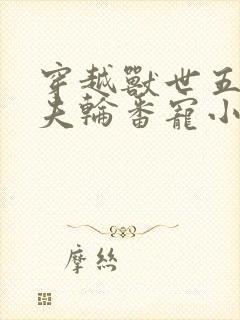 穿越獸世五
夫輪番寵小
摩絲